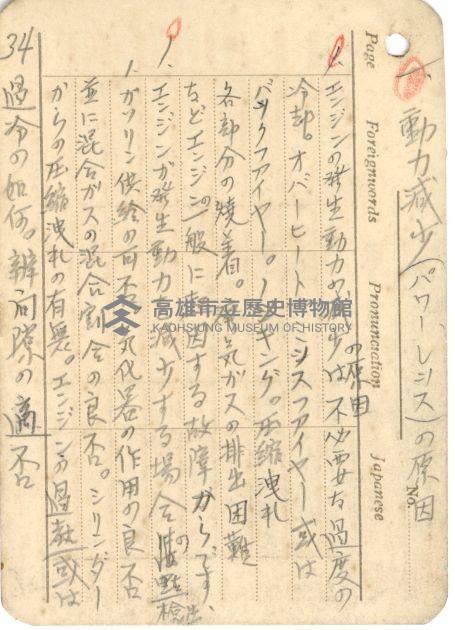 一、動力減少(パワーレシス)の原因
Page Foreignwords Pronunciation Japanese
No.
1. エンジンの発生動力の減少の原因は不必要な過度の
冷却。オバーヒート ミシスファイヤー或は
バックファイヤー。ノーッキング。圧縮洩れ
各部分の焼着。排気ガスの排出困難
などエンジンの一般に起因する故障からです、
1、エンジンが発生動力の減少する場合の点検
1. ガソリン供給の可否 気化器の作用の良否
並に混合ガスの混合割合の良否。シリンダー
からの圧縮洩れの有無。エンジンの過熱或は
34 過冷の如何。弁間隙の適否
高雄市立歷史博物館
KAOHSIUNG MUSEUM OF HISTORY